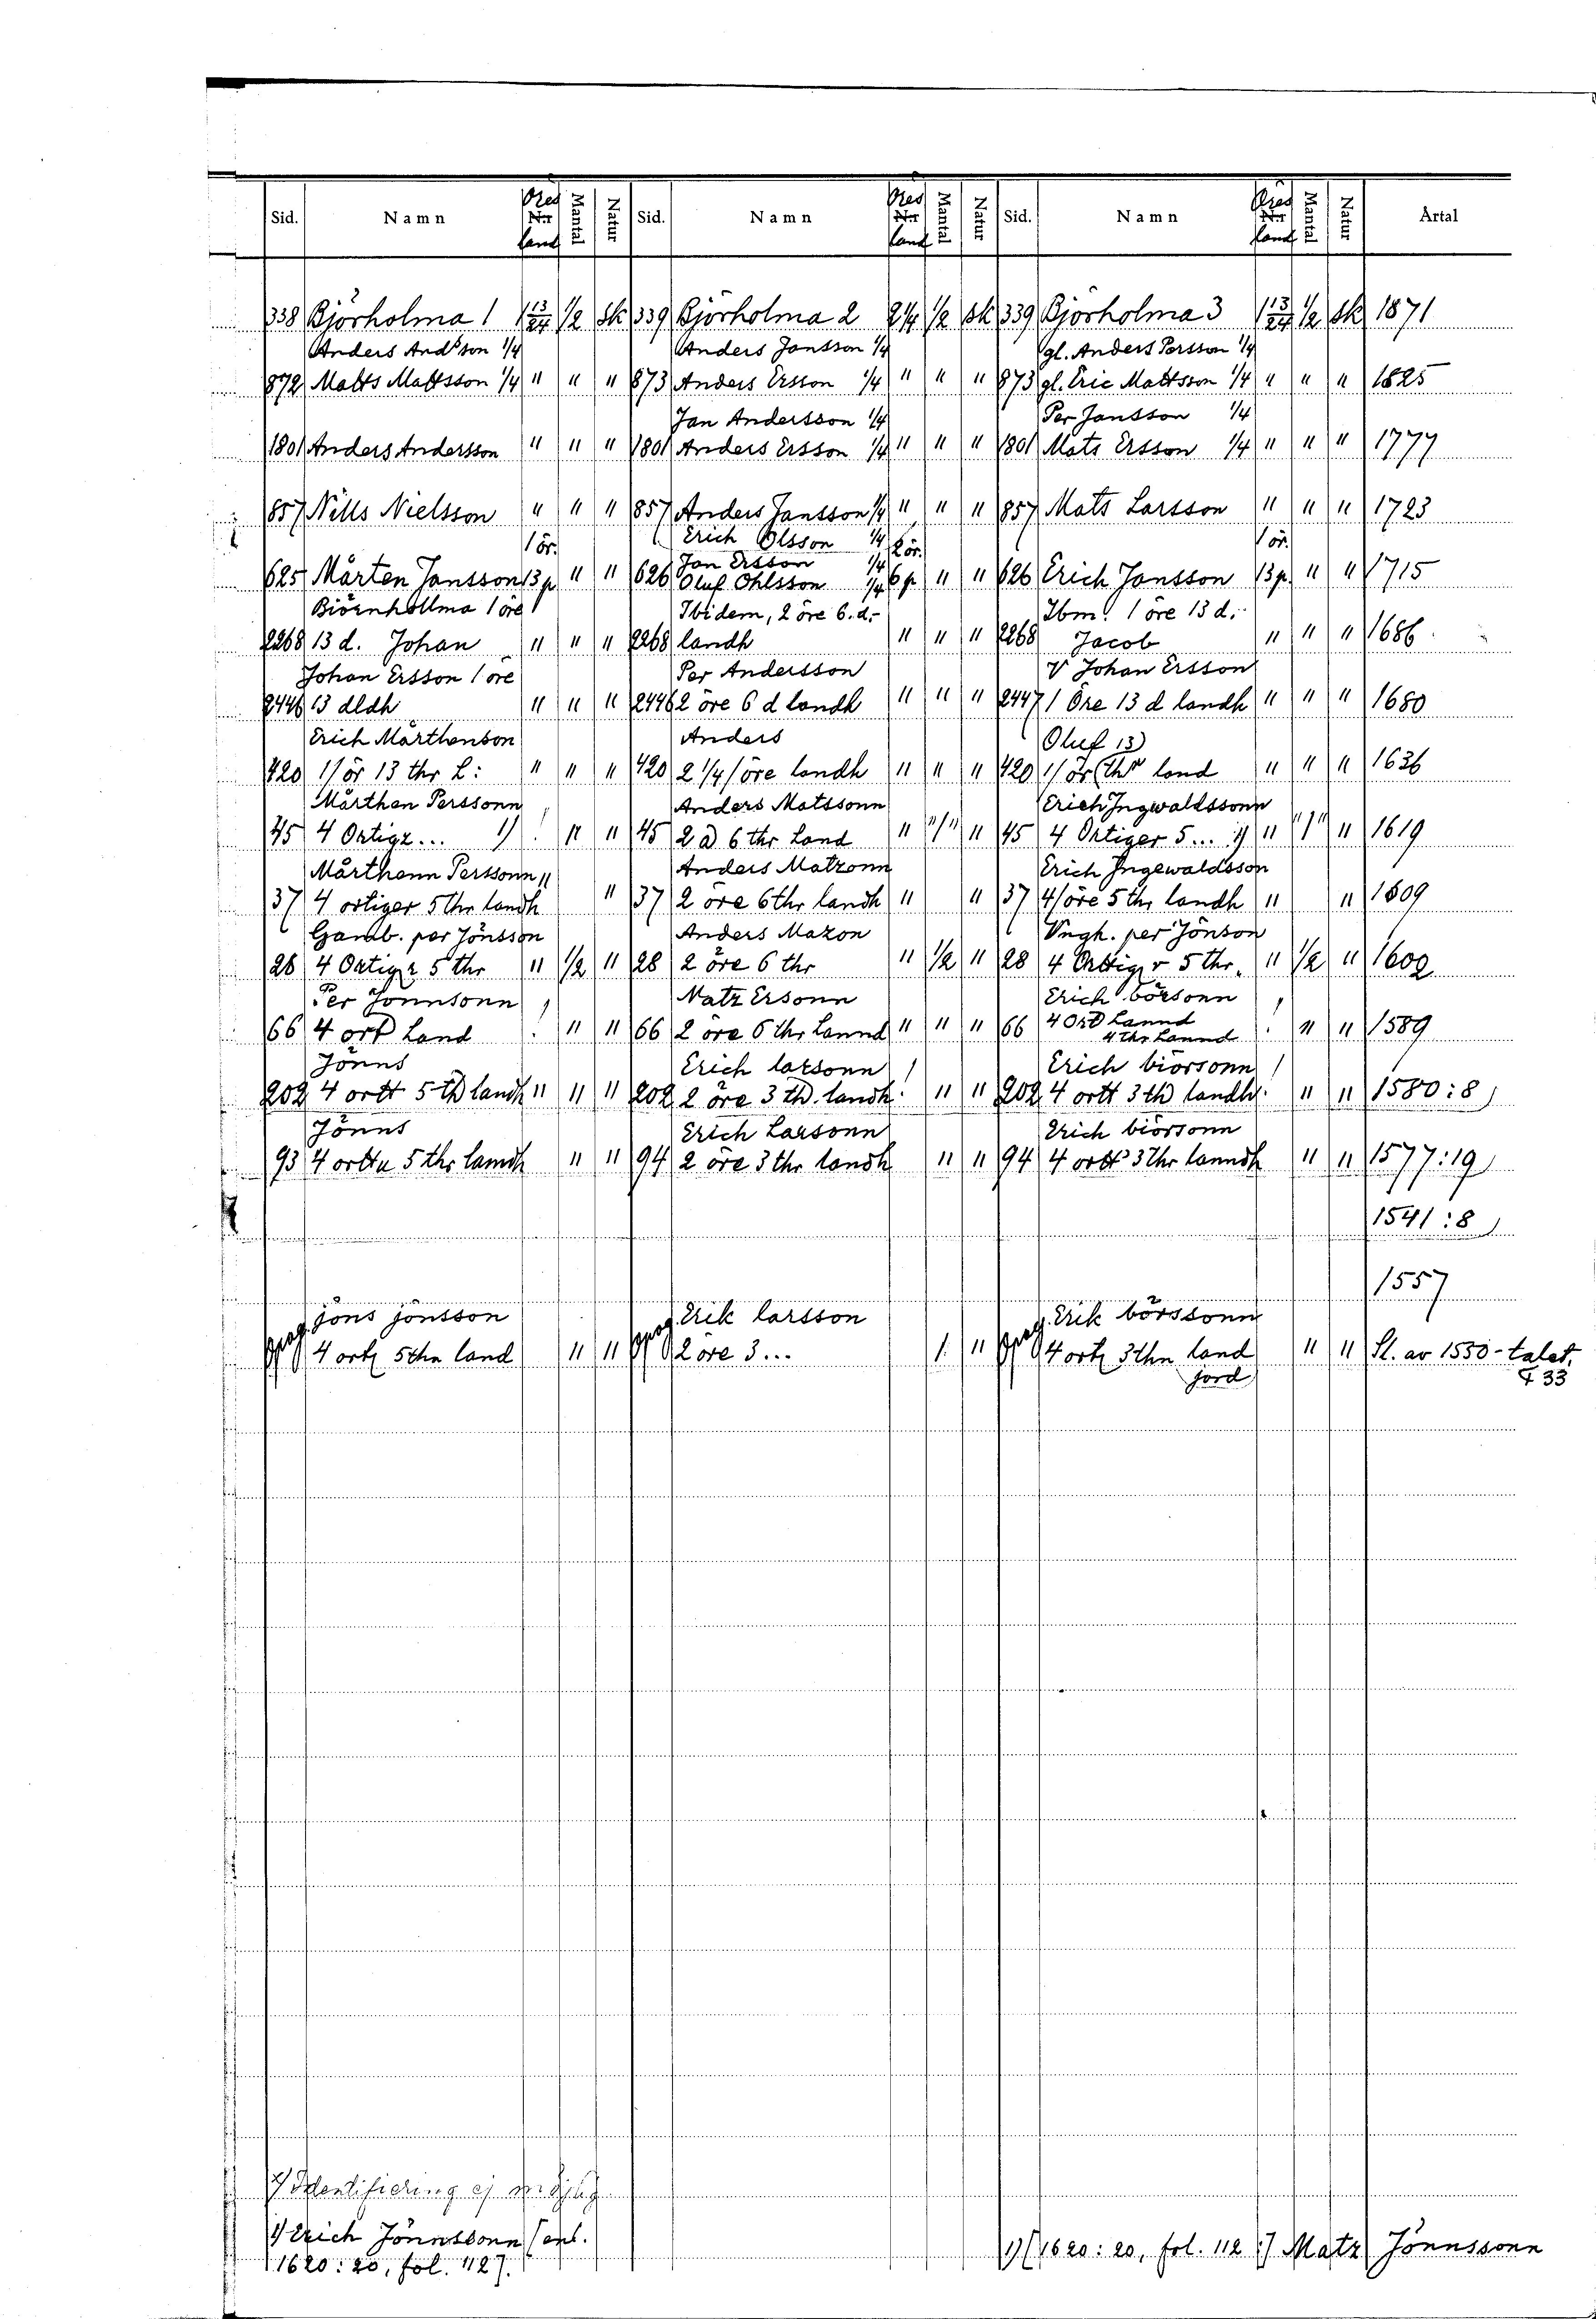 Sid. Namn Öresland Mantal Natur Sid. Namn Öresland Mantal Natur Sid. Namn Öresland Mantal Natur Årtal
338 Björholma 1 1 13/24 1/2 Sk 339 Björholma 2 2 1/4 1/2 Sk 339 Björholma 3 1 13/24 1/2 Sk 1871
Anders And:son 1/4 Anders Jansson 1/4 gl. Anders Persson 1/4
872 Matts Mattsson 1/4 " " " 873 Anders Ersson 1/4 " " " 873 gl. Eric Mattsson 1/4 " " " 1825
Jan Andersson 1/4 Per Jansson 1/4
1801 Anders Andersson " " " 1801 Anders Ersson 1/4 " " " 1801 Mats Ersson 1/4 " " " 1777
857 Nills Nielsson " " " 857 Anders Jansson 1/4 " " " 857 Mats Larsson " " " 1723
1 ör. Erich Olsson 1/4 2 ör. 1 ör.
Jan Ersson 1/4
625 Mårten Jansson 13 p. " " 626 Oluf Ohlsson 1/4 6 p. " " 626 Erich Jansson 13 p. " " 1715
Biörnhollma 1 öre Ibidem, 2 öre 6. d.- Ibm. 1 öre 13 d.-
2268 13 d. Johan " " " 2268 landh " " " 2268 Jacob " " " 1686
Johan Ersson 1 öre Per Andersson V Johan Ersson
2446 13 dldh " " " 2446 2 öre 6 d landh " " " 2447 1 Öre 13 d landh " " " 1680
Erich Mårthenson Anders Oluf 13)
420 1/ör 13 thr L: " " " 420 2 1/4/öre landh " " " 420 1/ör (thr land " " " 1636
Mårthen Perssonn Anders Matssonn Erich Ingwaldssonn
45 4 Örtigz... 1) " " 45 2 ö 6 thr Land " " " 45 4 Örtiger 5... 1) " " " 1619
Mårthenn Perssonn Anders Matzonn Erich Ingewaldsson
37 4 örtiger 5 thr landh " " 37 2 öre 6 thr landh " " 37 4/öre 5 thr landh " " 1609
Gamb. per Jönsson Anders Mazon Vngh. per Jönson
28 4 Örtigr 5 thr " 1/2 " 28 2 öre 6 thr " 1/2 " 28 4 Örttigr 5 thr. " 1/2 " 1602
Per Jönnsonn Matz Ersonn Erich börsonn
66 4 ort Land " " 66 2 öre 6 thr Lannd " " " 66 4 Ort Lannd
4 thr Lannd " " 1589
Jönns Erich larsonn Erich biörsonn
202 4 ortt 5 th landh " " " 202 2 öre 3 th. landh " " 202 4 ortt 3 th landh " " 1580:8
Jönns Erich Larsonn Erich biörsonn
93 4 ortta 5 thr landh " " 94 2 öre 3 thr landh " " 94 4 ortt 3 thr lanndh " " 1577:19
1541:8
1557
opag. jöns jönsson opag. Erik larsson opag. Erik börssonn
4 ort 5 thn land " " 2 öre 3... " 4 ort 3 thn land " " Sl. av 1550-talet,
jord F 33
Identifiering ej möjlig
1) Erich Jönnssonn [enl.
1620:20, fol. 112]. 1) [1620:20, fol. 112:] Matz Jönnssonn